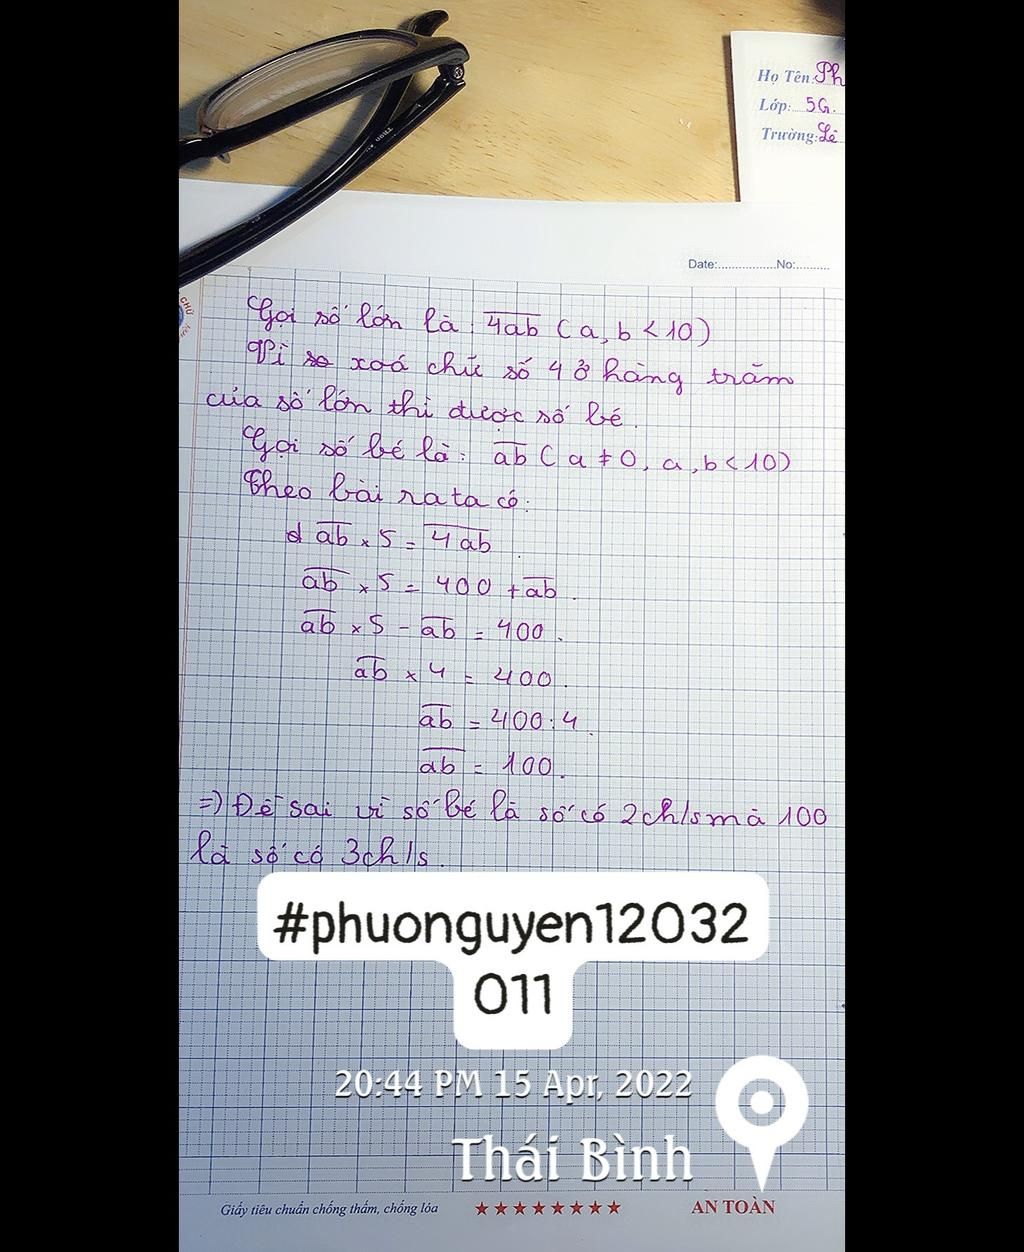 Họ Tên: Ph
Lớp: 5G.
Trường: Lê
Date:..................No:..........
Gọi số lớn là: 4ab ( a, b < 10 )
Vì so xoá chữ số 4 ở hàng trăm
của số lớn thì được số bé.
Gọi số bé là: ab ( a ≠ 0, a, b < 10 )
Theo bài ra ta có:
ab × 5 = 4ab
ab × 5 = 400 + ab.
ab × 5 - ab = 400.
ab × 4 = 400.
ab = 400 : 4.
ab = 100.
=> Đề sai vì số bé là số có 2ch/s mà 100
là số có 3ch/s.
#phuonguyen12032
011
20:44 PM 15 Apr, 2022
Thái Bình
Giấy tiêu chuẩn chống thấm, chống lóa ★★★★★★★★ AN TOÀN